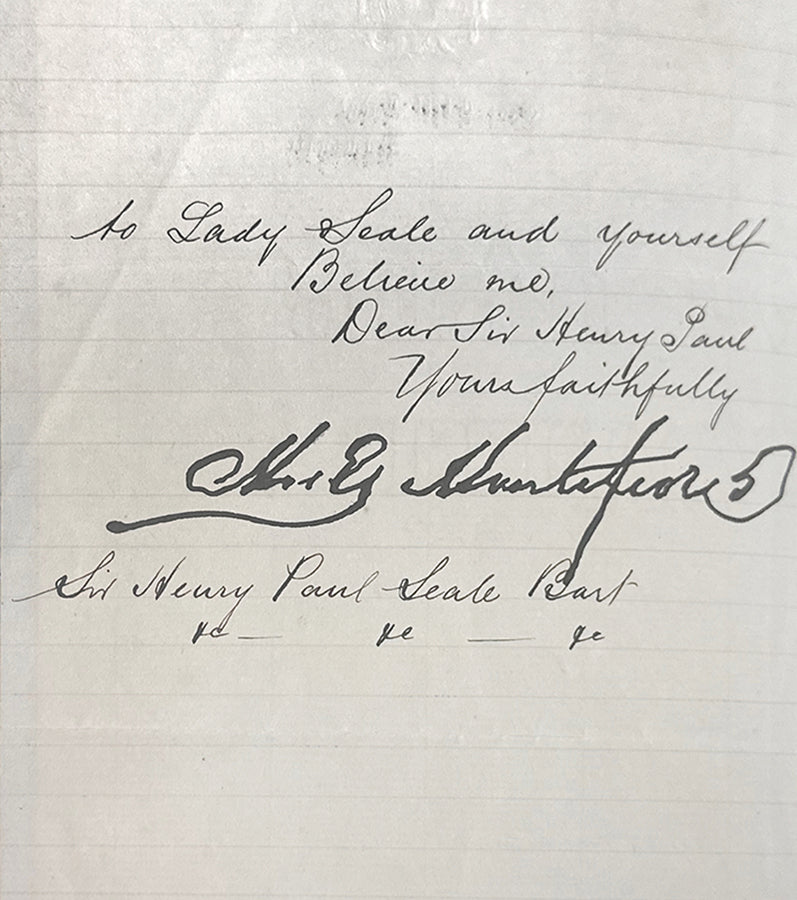 to Lady Seale and yourself
Believe me,
Dear Sir Henry Paul
Yours faithfully
Montefiore
Sir Henry Paul Seale Bart
&c — &c — &c